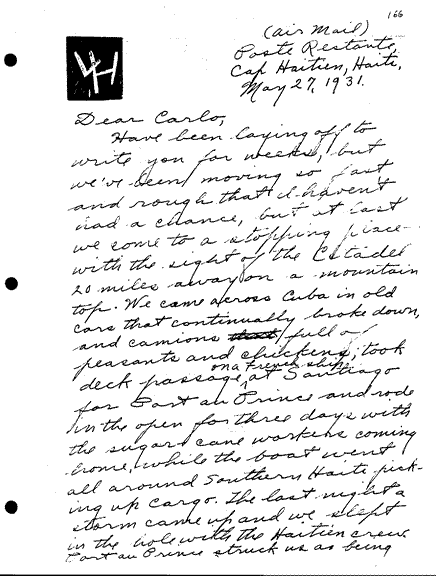 166
(Air Mail)
Poste Restante,
Cap Haitien, Haiti,
May 27, 1931.
LH
Dear Carlo,
Have been laying off to
write you for weeks, but
we've been moving so fast
and rough that I haven't
had a chance, but at last
we come to a stopping place
with the sight of the Citadel
20 miles away on a mountain
top. We came across Cuba in old
cars that continually broke down,
and camions full of
peasants and chickens; took
deck passage on a French ship at Santiago
for Port au Prince and rode
in the open for three days with
the sugar cane workers coming
home, while the boat went
all around Southern Haiti pick-
ing up cargo. The last night a
storm came up and we slept
in the hole with the Haitien crew.
Port au Prince struck us as being